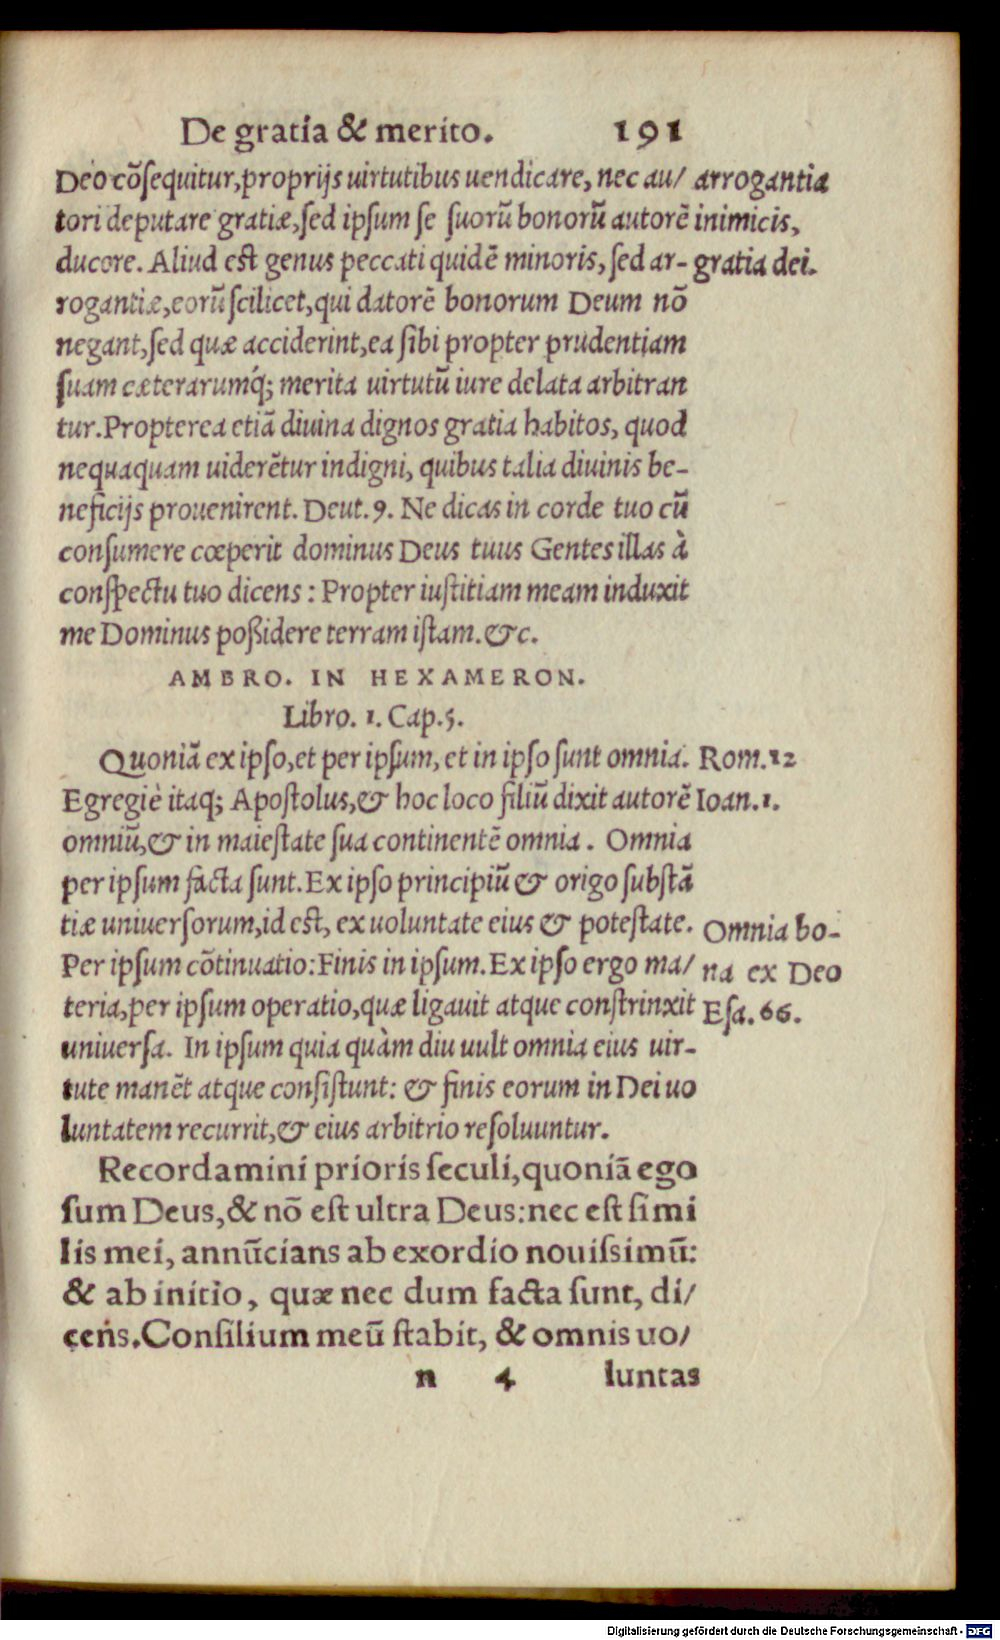 De gratia & merito. 191
Deo cõſequitur, proprijs uirtutibus uendicare, nec au/
tori deputare gratiæ, ſed ipſum ſe ſuorũ bonorũ autorẽ
ducere. Aliud est genus peccati quidẽ minoris, ſed ar-
rogantiæ, eorũ ſcilicet, qui datorẽ bonorum Deum nõ
negant, ſed quæ acciderint, ea ſibi propter prudentiam
ſuam cæterarumq́; merita uirtutũ iure delata arbitran
tur. Propterea etiã diuina dignos gratia habitos, quod
nequaquam uiderẽtur indigni, quibus talia diuinis be-
neficijs prouenirent. Deut. 9. Ne dicas in corde tuo cũ
conſumere cœperit dominus Deus tuus Gentes illas à
conſpectu tuo dicens : Propter iuſtitiam meam induxit
me Dominus poßidere terram iſtam. &c.
arrogantia
inimicis,
gratia dei.
AMBRO. IN HEXAMERON.
Libro. 1. Cap. 5.
Quoniã ex ipſo, et per ipſum, et in ipſo ſunt omnia.
Egregiè itaq; Apoſtolus, & hoc loco filiũ dixit autorẽ
omniũ, & in maieſtate ſua continentẽ omnia. Omnia
per ipſum facta ſunt. Ex ipſo principiũ & origo ſubſtã
tiæ uniuerſorum, id est, ex uoluntate eius & poteſtate.
Per ipſum cõtinuatio: Finis in ipſum. Ex ipſo ergo ma/
teria, per ipſum operatio, quæ ligauit atque conſtrinxit
uniuerſa. In ipſum quia quàm diu uult omnia eius uir-
tute manẽt atque conſiſtunt: & finis eorum in Dei uo
luntatem recurrit, & eius arbitrio reſoluuntur.
Rom. 12
Ioan. 1.
Omnia bo-
na ex Deo
Eſa. 66.
Recordamini prioris ſeculi, quoniã ego
ſum Deus, & nõ eſt ultra Deus: nec eſt ſimi
lis mei, annũcians ab exordio nouiſsimũ:
& ab initio, quæ nec dum facta ſunt, di/
cens. Conſilium meũ ſtabit, & omnis uo/
n 4 luntas
Digitalisierung gefördert durch die Deutsche Forschungsgemeinschaft - DFG